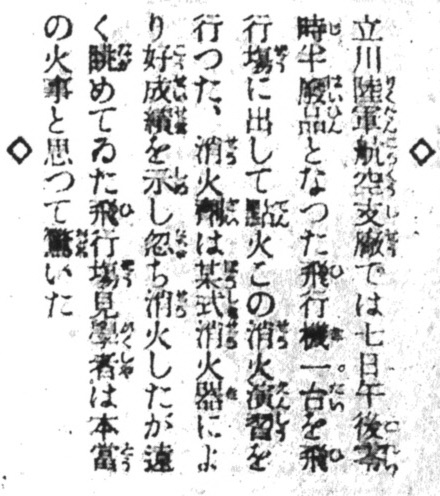 立川陸軍航空支廠では七日午後零
時半廢品となつた飛行機一台を飛
行場に出して點火この消火演習を
行つた、消火劑は某式消火器によ
り好成績を示し忽ち消火したが遠
く眺めてゐた飛行場見學者は本當
の火事と思つて驚いた